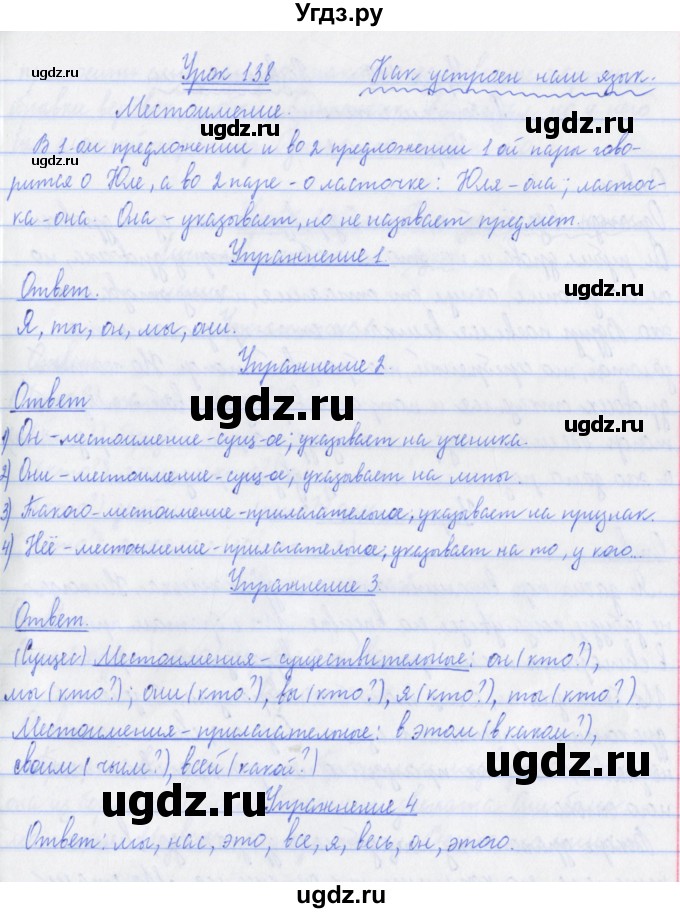 Угдз.ру
Урок 138 Как устроен наш язык.
Местоимение.
В 1-ом предложении и во 2 предложении 1 ой пары гово-
рится о Юле, а во 2 паре - о ласточке: Юля - она; ласточ-
ка - она. Она - указывает, но не называет предмет.
Упражнение 1.
Ответ.
Я, ты, он, мы, они.
Упражнение 2.
Ответ
1) Он - местоимение - сущ-ое; указывает на ученика.
2) Они - местоимение - сущ-ое, указывает на липы.
3) Такого - местоимение - прилагательное, указывает на признак.
4) Неё - местоимение - прилагательное, указывает на то, у кого...
Упражнение 3.
Ответ.
(Сущес) Местоимения - существительные: он (кто?),
мы (кто?); они (кто?), вы (кто?), я (кто?), ты (кто?)
Местоимения - прилагательные: в этом (в каком?),
своим (чьим?), всей (какой?)
Упражнение 4
Ответ: мы, нас, это, все, я, весь, он, этого.
ugdz.ru
ugdz.ru
ugdz.ru
ugdz.ru
ugdz.ru
ugdz.ru
ugdz.ru
ugdz.ru
ugdz.ru
ugdz.ru
ugdz.ru
ugdz.ru
ugdz.ru